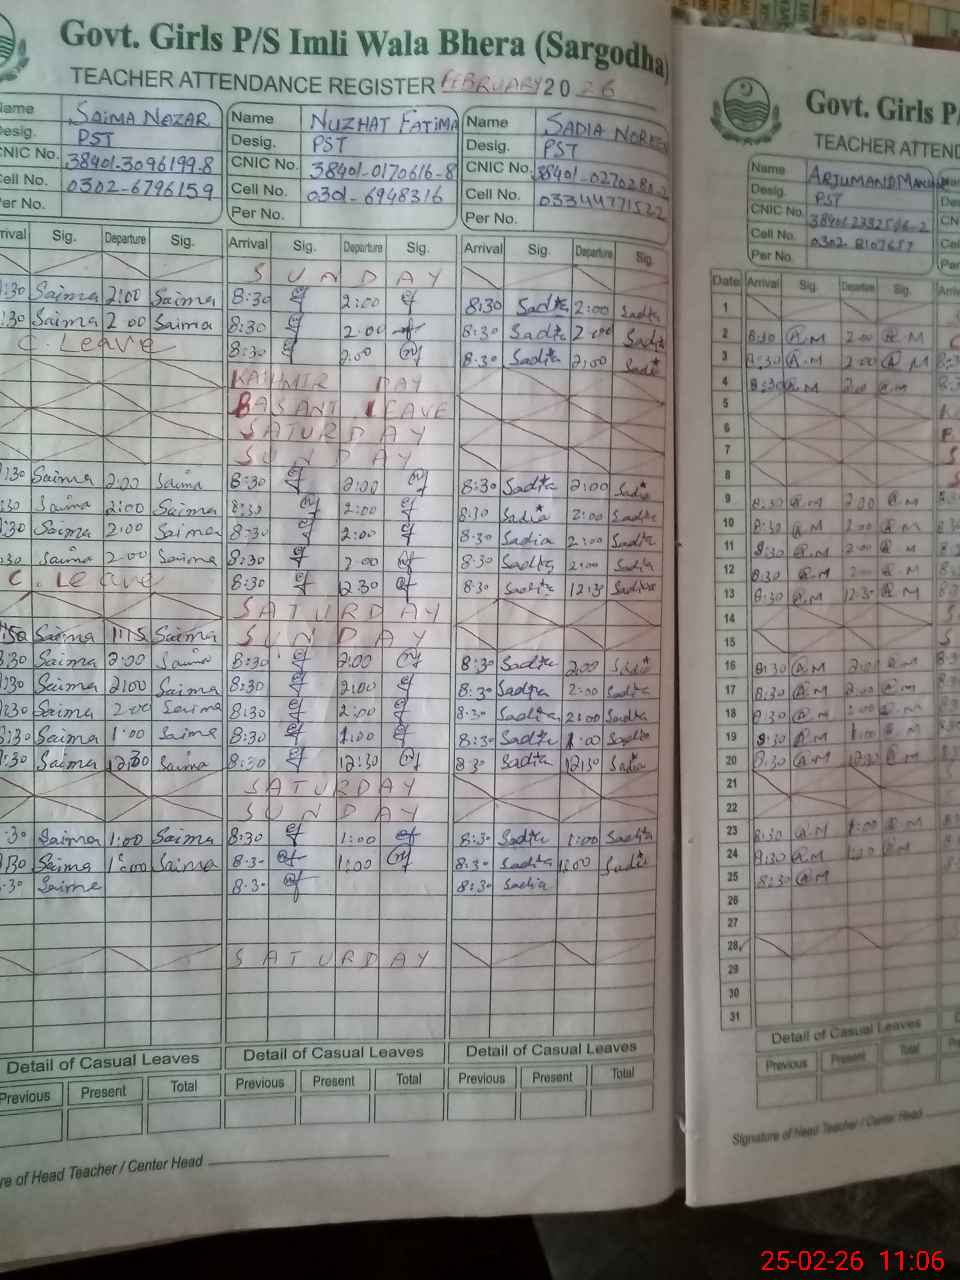 Govt. Girls P/S Imli Wala Bhera (Sargodha)
TEACHER ATTENDANCE REGISTER FEBRUARY 2026
Name SAIMA NAZAR
Desig. PST
CNIC No. 38401-3096199-8
Cell No. 0302-6796159
Per No.
Name NUZHAT FATIMA
Desig. PST
CNIC No. 38401-0170616-8
Cell No. 0301-6948316
Per No.
Name SADIA NOREEN
Desig. PST
CNIC No.
Cell No.
Per No.
Sig. Departure Sig. Arrival Sig. Departure Sig. Arrival Sig. Departure Sig.
SUNDAY
:30 Saima 2:00 Saima 8:30 2:00 8:30 Sadia 2:00 Sadia
:30 Saima 2:00 Saima 8:30 2:00 8:30 Sadia 2:00 Sadia
C. Leave 8:30 2:00 8:30 Sadia 2:00 Sadia
KASHMIR DAY
BASANT LEAVE
SATURDAY
SUNDAY
:30 Saima 2:00 Saima 8:30 2:00 8:30 Sadia 2:00 Sadia
:30 Saima 2:00 Saima 8:30 2:00 8:30 Sadia 2:00 Sadia
:30 Saima 2:00 Saima 8:30 2:00 8:30 Sadia 2:00 Sadia
:30 Saima 2:00 Saima 8:30 2:00 8:30 Sadia 2:00 Sadia
C. Leave 8:30 12:30 8:30 Sadia 12:30 Sadia
SATURDAY
Saima 11:15 Saima SUNDAY
8:30 Saima 2:00 Saima 8:30 2:00 8:30 Sadia 2:00 Sadia
:30 Saima 2:00 Saima 8:30 2:00 8:30 Sadia 2:00 Sadia
:30 Saima 2:00 Saima 8:30 2:00 8:30 Sadia 2:00 Sadia
8:30 Saima 1:00 Saima 8:30 1:00 8:30 Sadia 1:00 Sadia
:30 Saima 12:30 Saima 8:30 12:30 8:30 Sadia 12:30 Sadia
SATURDAY
SUNDAY
:30 Saima 1:00 Saima 8:30 1:00 8:30 Sadia 1:00 Sadia
:30 Saima 1:00 Saima 8:30 1:00 8:30 Sadia 1:00 Sadia
:30 Saima 8:30 8:30 Sadia
SATURDAY
Detail of Casual Leaves Detail of Casual Leaves Detail of Casual Leaves
Previous Present Total Previous Present Total Previous Present Total
of Head Teacher / Center Head
Govt. Girls P/
TEACHER ATTEND
Name ARJUMAND
Desig. PST
CNIC No.
Cell No. 0302-8107657
Per No.
Date Arrival Sig. Departure Sig.
1
2 8:30 A.M 2:00 A.M
3 8:30 A.M 2:00 A.M
4 8:30 A.M 2:00 A.M
5
6
7
8
9 8:30 A.M 2:00 A.M
10 8:30 A.M 2:00 A.M
11 8:30 A.M 2:00 A.M
12 8:30 A.M 2:00 A.M
13 8:30 A.M 12:30 A.M
14
15
16 8:30 A.M 2:00 A.M
17 8:30 A.M 2:00 A.M
18 8:30 A.M 2:00 A.M
19 8:30 A.M 1:00 A.M
20 8:30 A.M 12:30 A.M
21
22
23 8:30 A.M 1:00 A.M
24 8:30 A.M 1:00 A.M
25 8:30 A.M
26
27
28
29
30
31
Detail of Casual Leaves
Previous Present Total
Signature of Head Teacher / Center Head
25-02-26 11:06